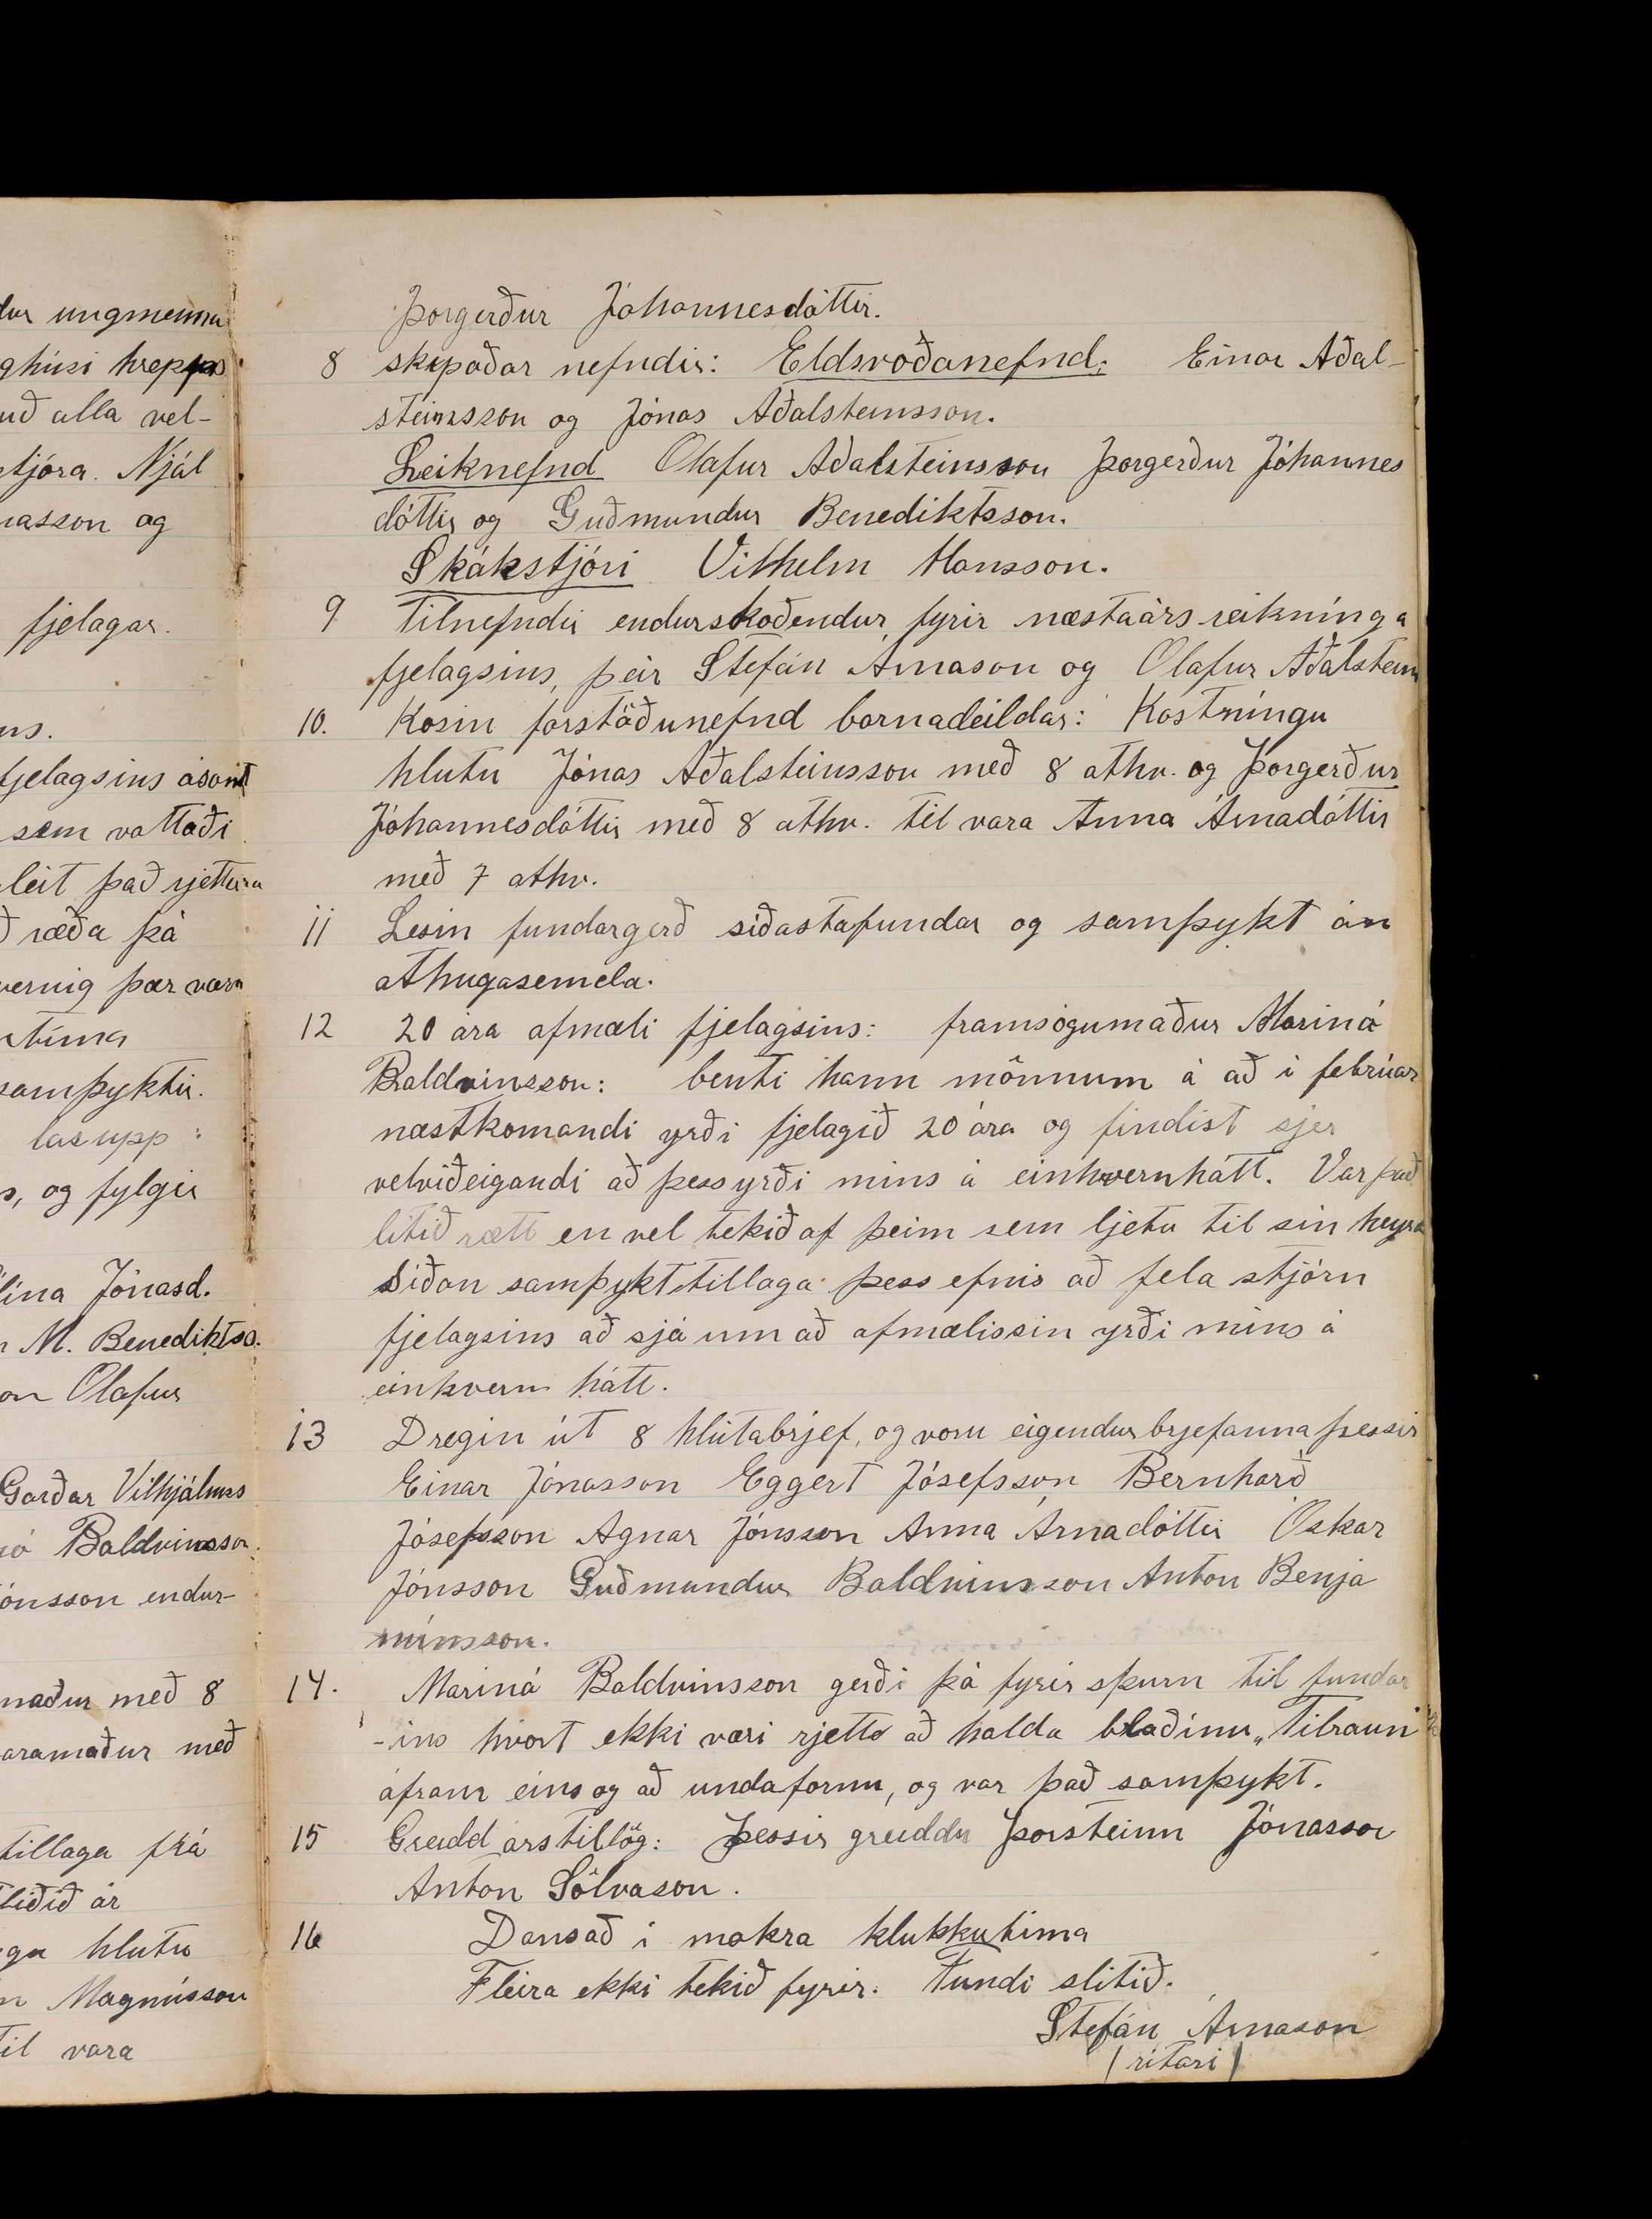 dur ungmenna
ghúsi hrepps
uð alla vel-
stjóra. Njál
nasson og
fjelagar.
ns.
fjelagsins ásamt
sem vottaði
leit það rjettara
ð ræða þá
vernig þær væru
tíma
samþyktir.
las upp:
s, og fylgir
lína Jónasd.
n M. Benediktss.
on Olafur
Garðar Vilhjálmss
nó Baldvinsson.
ónsson endur-
maður með 8
aramaður með
tillaga frá
liðið ár
gu hlutu
n Magnússon
til vara
Þorgerður Jóhannesdóttir.
8 skipaðar nefndir: Eldsvoðanefnd: Einar Aðal-
steinsson og Jónas Aðalsteinsson.
Leiknefnd Olafur Aðalsteinsson Þorgerður Jóhannes
dóttir og Guðmundur Benediktsson.
Skákstjóri Vilhelm Hansson.
9 Tilnefndir endurskoðendur, fyrir næstaárs reikninga
fjelagsins, þeir Stefán Árnason og Olafur Aðalsteins
10. Kosin forstöðunefnd barnadeildar: Kostningu
hlutu Jónas Aðalsteinsson með 8 athv. og Þorgerður
Jóhannesdóttir með 8 athv. til vara Anna Árnadóttir
með 7 athv.
11 Lesin fundargerð síðastafundar og samþykt án
athugasemda.
12 20 ára afmæli fjelagsins: framsögumaður Marinó
Baldvinsson: benti hann mönnum á að í febrúar
næstkomandi yrði fjelagið 20 ára og findist sjer
velviðeigandi að þess yrði mins á einhvernhátt. Var það
lítið rætt en vel tekið af þeim sem ljetu til sín heyra
Síðan samþykt tillaga þess efnis að fela stjórn
fjelagsins að sjá um að afmælissin yrði mins á
einhvern hátt.
13 Dregin út 8 hlutabrjef, og voru eigendur brjefanna þessir
Einar Jónasson Eggert Jósefsson Bernharð
Jósefsson Agnar Jónsson Anna Árnadóttir Óskar
Jónsson Guðmundur Baldvinsson Anton Benja
mínsson.
14. Marinó Baldvinsson gerði þá fyrirspurn til fundar
-ins hvort ekki væri rjett að halda blaðinu „Tilraun"
áfram eins og að undaförnu, og var það samþykt.
15 Greidd árstillög: Þessir greiddu Þorsteinn Jónasson
Anton Sölvason.
16 Dansað í nokra klukkutíma
Fleira ekki tekið fyrir. Fundi slitið.
Stefán Árnason
(ritari)